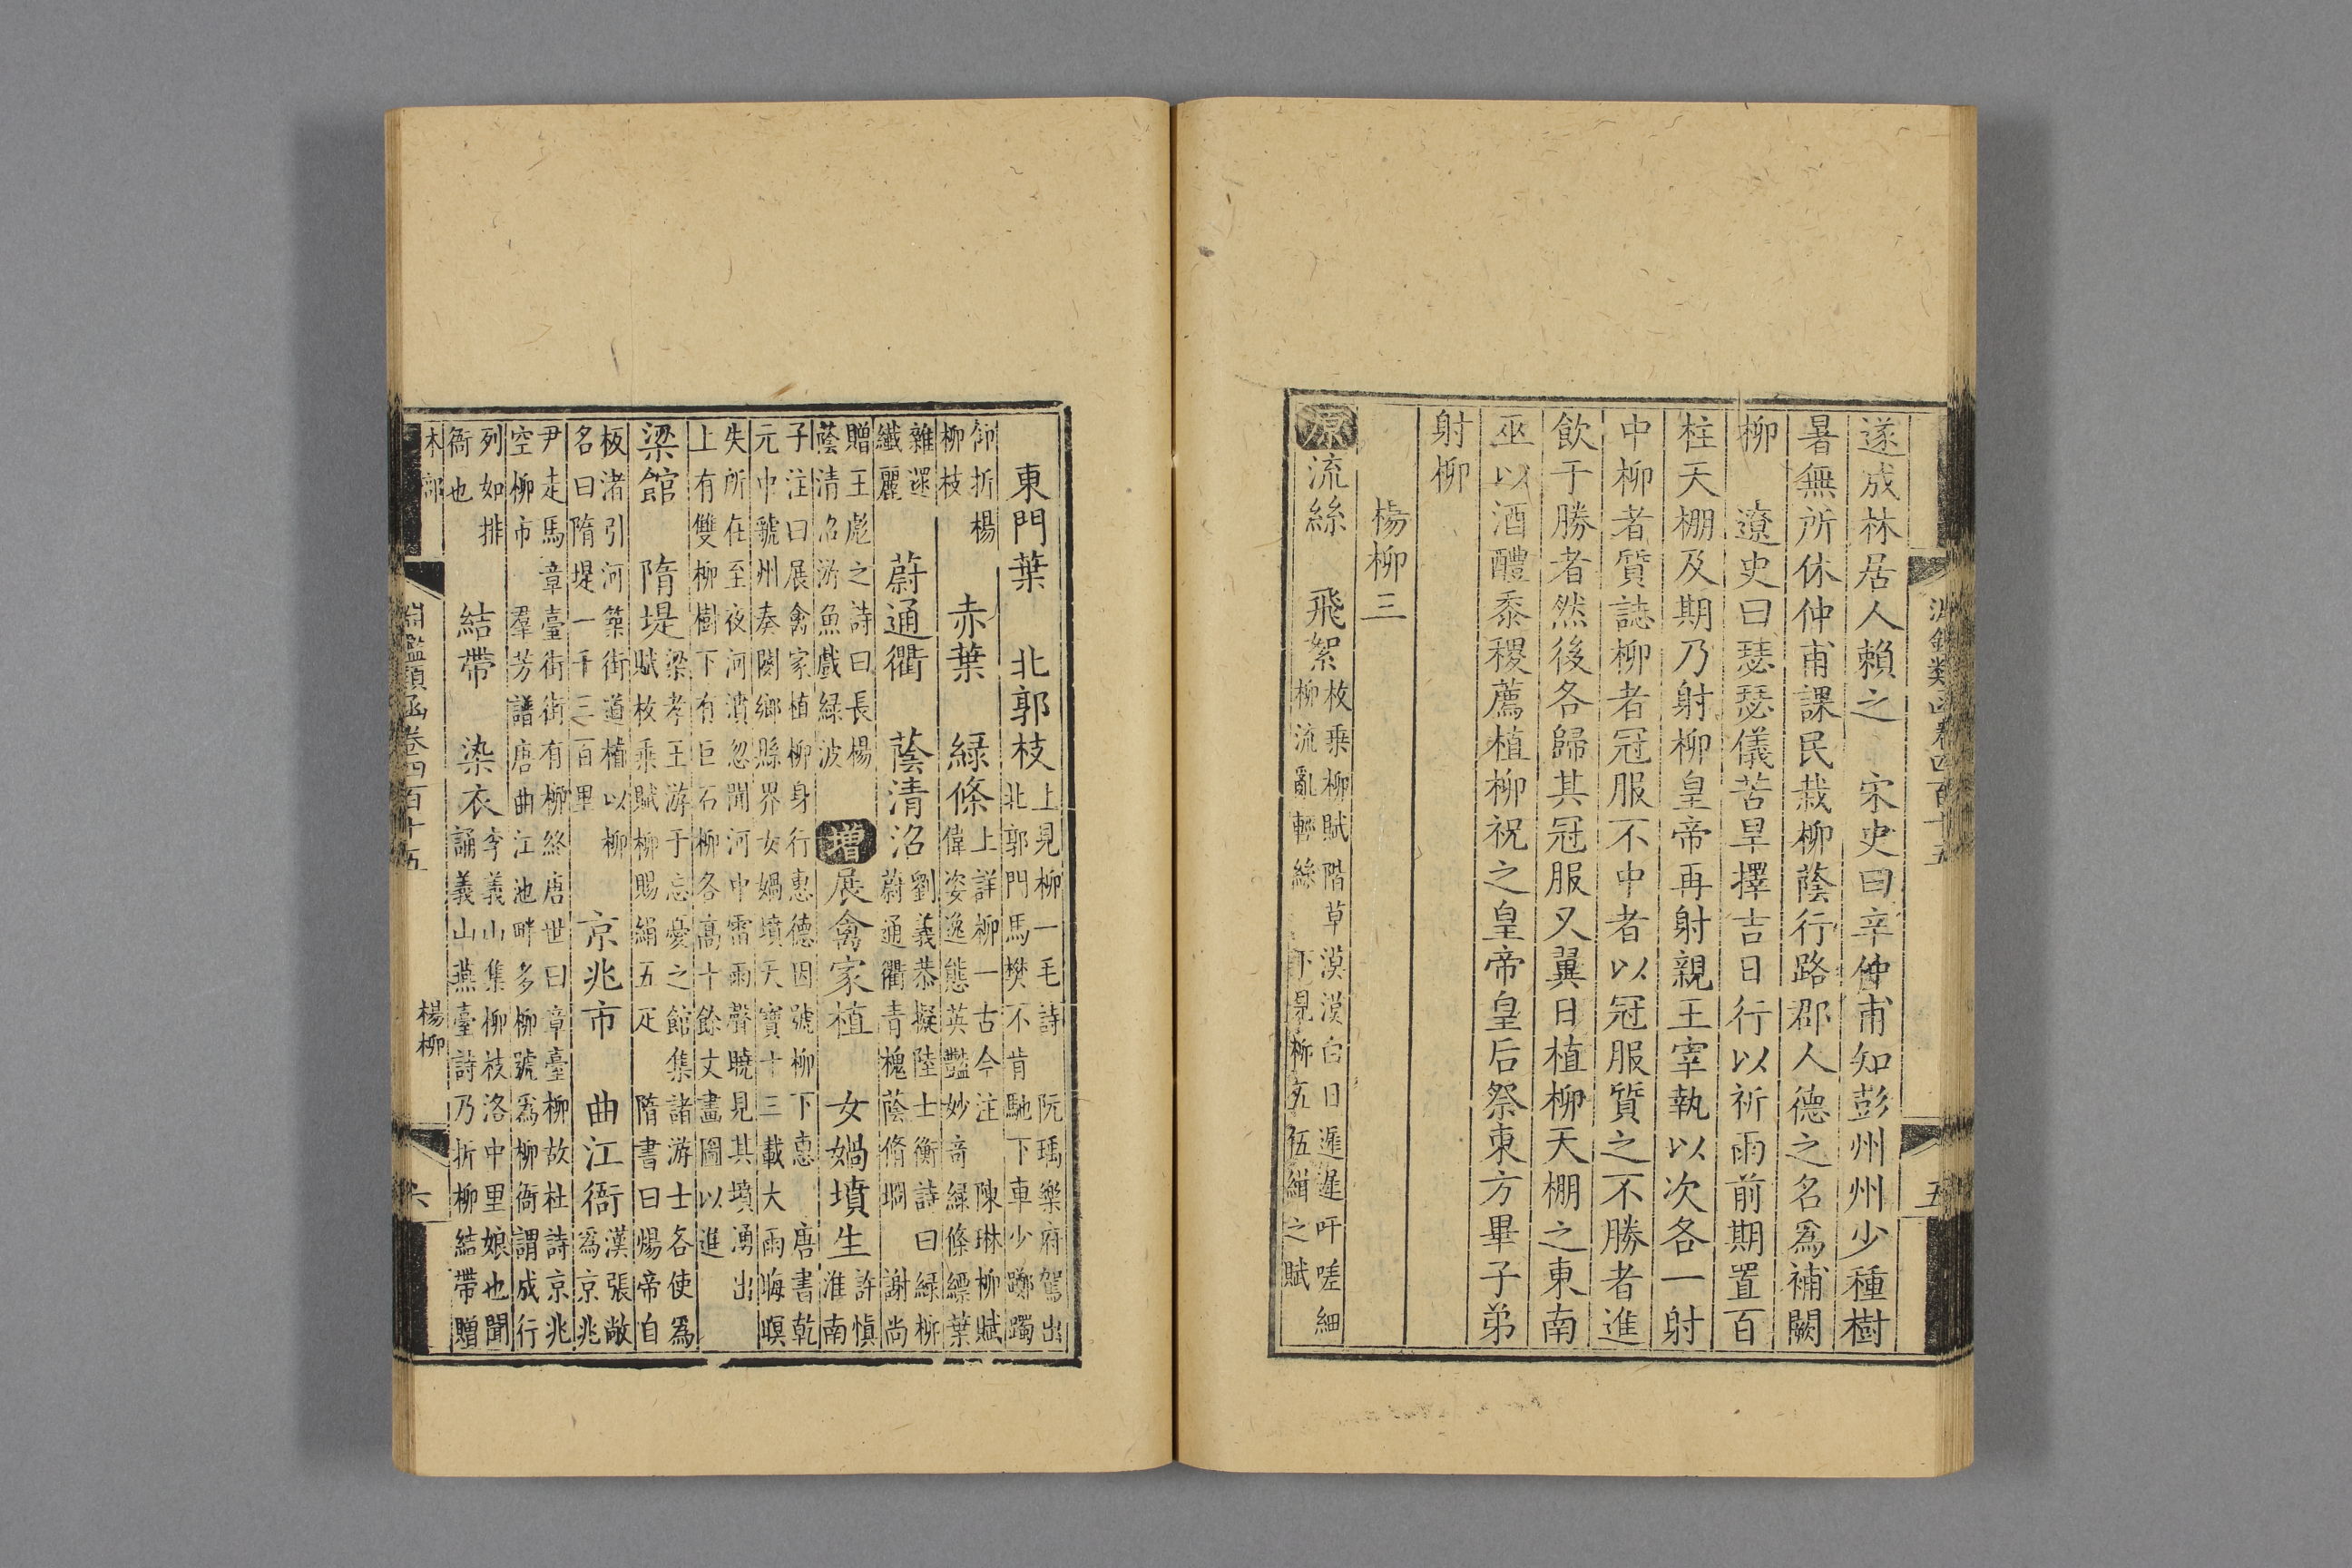 淵鑑類函卷四百十五
五
遂成林居人賴之　宋史曰辛仲甫知彭州州少種樹
暑無所休仲甫課民栽柳蔭行路郡人德之名爲補闕
柳　遼史曰瑟瑟儀苦旱擇吉日行以祈雨前期置百
柱天棚及期乃射柳皇帝再射親王宰執以次各一射
中柳者質誌柳者冠服不中者以冠服質之不勝者進
飲于勝者然後各歸其冠服又翼日植柳天棚之東南
巫以酒醴黍稷薦植柳祝之皇帝皇后祭東方畢子弟
射柳
楊柳三
原流絲　飛絮枝乗柳賦階草漠漠白日遲遲吁嗟細
柳流亂輕絲　下見柳五伍緝之賦
東門葉　北郭枝上見柳一毛詩　阮瑀樂府駕出
北郭門馬樊不肯馳下車少躑躅
仰折楊
柳枝　赤葉　緑條上詳柳一古今注　陳琳柳賦
偉姿逸態英豔妙竒緑條縹葉
雜遝
纖麗　蔚通衢　蔭清沼劉義恭擬陸士衡詩曰緑柳
蔚通衢青槐蔭脩坰　謝尚
贈王彪之詩曰長楊
蔭清沼游魚戲緑波　增展禽家植　女媧墳生許慎
淮南
子注曰展禽家植柳身行惠德因號柳下惠　唐書乾
元中虢州奏閿鄉縣界女媧墳天寶十三載大雨晦暝
失所在至夜河濆忽聞河中雷雨聲曉見其墳湧出
上有雙柳樹下有巨石柳各高十餘丈畫圖以進
梁館　隋堤梁孝王游于忘憂之館集諸游士各使爲
賦枚乗賦柳賜絹五疋　隋書曰煬帝自
板渚引河築街道植以柳
名曰隋堤一千三百里　京兆市　曲江衙漢張敞
爲京兆
尹走馬章臺街街有柳終唐世曰章臺柳故杜詩京兆
空柳市　羣芳譜唐曲江池畔多柳號爲柳衙謂成行
列如排
衙也　結帶　染衣李義山集柳枝洛中里娘也聞
誦義山燕臺詩乃折柳結帶贈
木部
淵鑑類函卷四百十五
楊柳
六